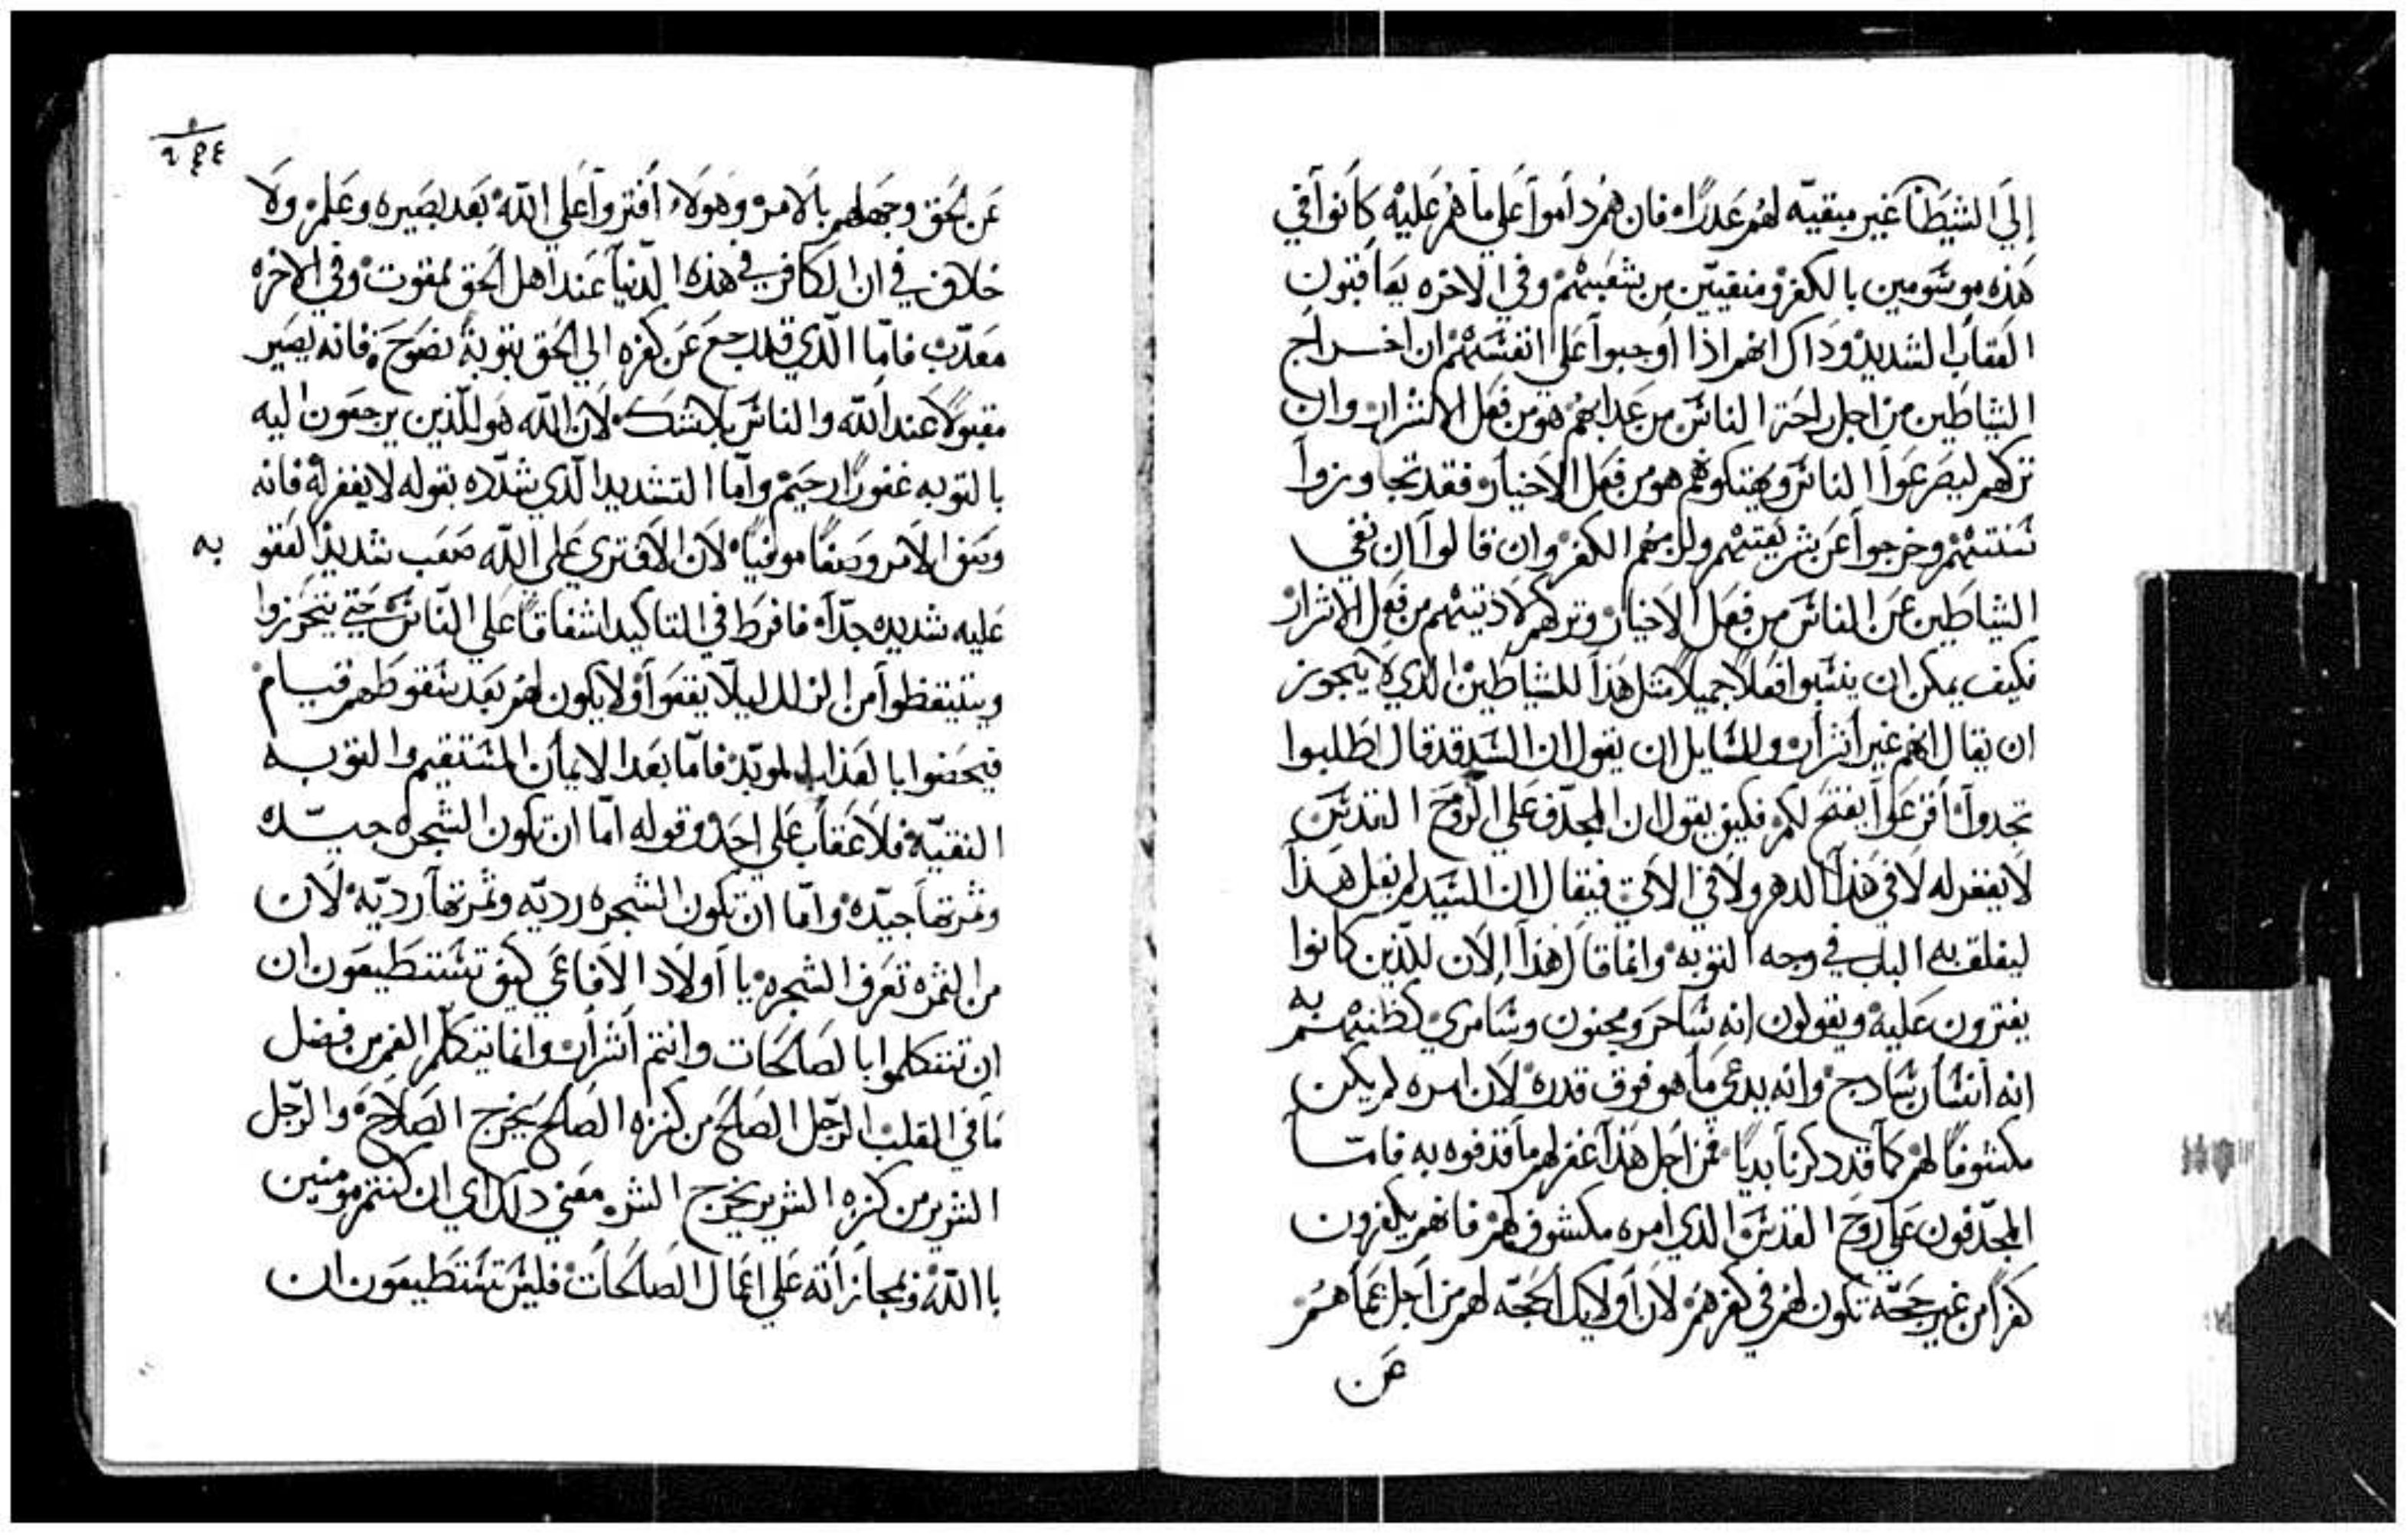 إلي الشيطان غير مبقيه لهم عدرًا، فان هم داموا علي ما هم عليه كانوا في
هذه موسومين بالكفر ومنفيين من شعبهم وفي الاخره يعاقبون
العقاب الشديد وداك انهم اذا اوجبوا علي انفسهم ان اخراج
الشياطين من اجل راحة الناس من عدابهم هو من فعل الاشرار وان
تركهم ليصرعوا الناس ويهتكوهم هو من فعل الاخيار فقد تجاوزوا
سنتهم وخرجوا عن شريعتهم ولزمهم الكفر وان قالوا ان نفي
الشياطين عن الناس من فعل الاخيار وتركهم لاذيتهم من فعل الاشرار
فكيف يمكن ان ينسبوا فعلاً جميلاً مثل هذا للشياطين الذي لا يجوز
ان يقال انهم غير أشرار وللسايل ان يقول ان السيد قد قال اطلبوا
تجدوا أقرعوا يفتح لكم فكيف يقول ان المجدّف علي الروح القدس
لا يغفر له لا في هذا الدهر ولا في الاتي فيقال ان السيد لم يقل هذا
ليغلق به الباب في وجه التوبه وانما قال هذا الان للذين كانوا
يفترون عليه ويقولون انه ساحر ومجنون وسامري كظنهم به
انه أنسان سادج وانه يدعي ما هو فوق قدره لان امره لم يكن
مكشوفًا لهم كما قد دكرنا بديًا فمن اجل هذا غفر لهم ما قذفوه به فاما
المجدّفون علي روح القدس الذي امره مكشوف لهم فانهم يكفرون
كفرًا من غير حجّه تكون لهم في كفرهم لان أولايك الحجّه لهم من اجل عماهم
عن
٢٤٤
عن الحق وجهلهم بالامر وهولاء أفتروا علي الله بعد بصيره وعلم ولا
خلاف في ان الكافر في هذه الدنيا عند اهل الحق ممقوت وفي الاخره
معدّب فامّا الّذي قد رجع عن كفره الي الحق بتوبة نصوحة فانه يصير
مقبولاً عند الله والناس بلا شك لان الله هو للّذين يرجعون اليه
بالتوبه غفورًا رحيم وأمّا التشديد الّذي شدّده بقوله لا يغفر له فانه
وصف الامر وصفًا موفيًا لان الافتري علي الله صعب شديد العقوبه
عليه شديده جدّاً فافرط في التاكيد اشفاقًا علي النّاس حتي يتحرّزوا
ويتيقظوا من الزلل ليلّا يقعوا ولا يكون لهم بعد سقوطهم قيام
فيحصلوا بالعذاب الموبّد فامّا بعد الايمان المستقيم والتوبه
النقيّه فلا عقاب علي احد وقوله امّا ان تكون الشجره جيّده
وثمرتها جيّده وامّا ان تكون الشجره رديّه وثمرتها رديّه لان
من الثمره تعرف الشجره يا أولاد الافاعي كيف تستطيعون ان
ان تتكلموا بالصالحات وانتم أشرار وانما يتكلّم الفم من فضل
ما في القلب الرّجل الصالح من كنزه الصالح يخرج الصلاح والرّجل
الشرير من كنزه الشرير يخرج الشر معني دلك اي ان كنتم مومنين
باالله وبمجازأته علي اعمال الصالحات فليس تستطيعون ان